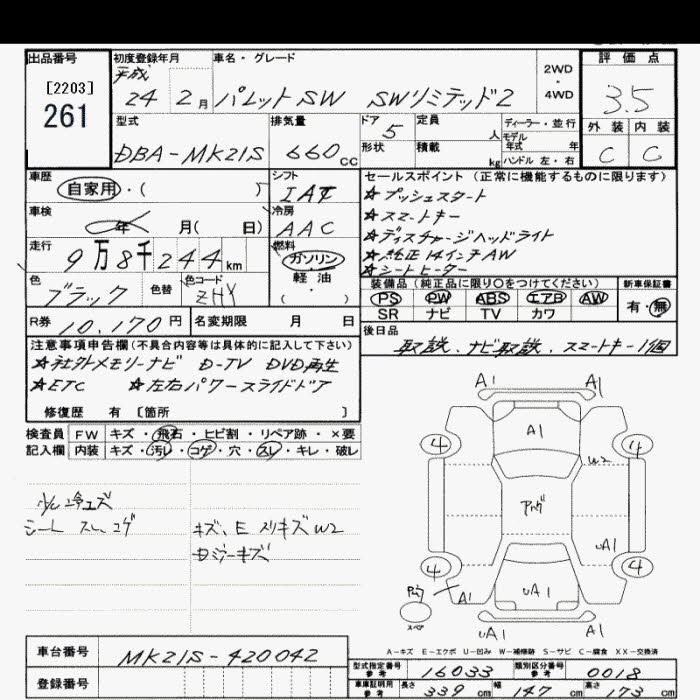 出品番号
[2203]
261
初度登録年月
平成
24 2月
車名・グレード
パレットSW SWリミテッド2
2WD
・
4WD
評価点
3.5
外装 内装
C C
型式
DBA-MK21S
排気量
660cc
ドア
5
形状
定員
人
積載
kg
ディーラー・並行
モデル
年式 年
ハンドル 左・右
車歴
自家用・( )
シフト
IAT
冷房
AAC
車検
年 月( 日)
走行
9万8千244km
燃料
ガソリン
・
軽油
( )
色
ブラック
色替
色コード
ZHY
R券
10,170円
名変期限 月 日
セールスポイント(正常に機能するものに限ります)
☆プッシュスタート
☆スマートキー
☆ディスチャージヘッドライト
☆純正14インチAW
☆シートヒーター
装備品(純正品に限り○をつけてください)
PS PW ABS エアB AW
SR ナビ TV カワ
新車保証書
有・無
後日品
取説、ナビ取説、スマートキー1個
注意事項申告欄(不具合内容等は具体的に記入して下さい)
☆社外メモリーナビ D-TV DVD再生
☆ETC ☆左右パワースライドドア
修復歴 有 [箇所 ]
検査員 FW キズ・飛石・ヒビ割・リペア跡・×要
記入欄 内装 キズ・汚レ・コゲ・穴・スレ・キレ・破レ
シート スレ、コゲ
キズ、E スリキズW2
A1 A1
4 A1 4
W2
UA1
4 4
A1 UA1
スペア
UA1 A1
A-キズ E-エクボ U-凹み W-補修跡 S-サビ C-腐食 XX-交換済
車台番号
MK21S-420042
登録番号
型式指定番号
参考
16033
類別区分番号
参考
0018
車庫証明用
参考
長さ
339cm
幅
147cm
高さ
173cm